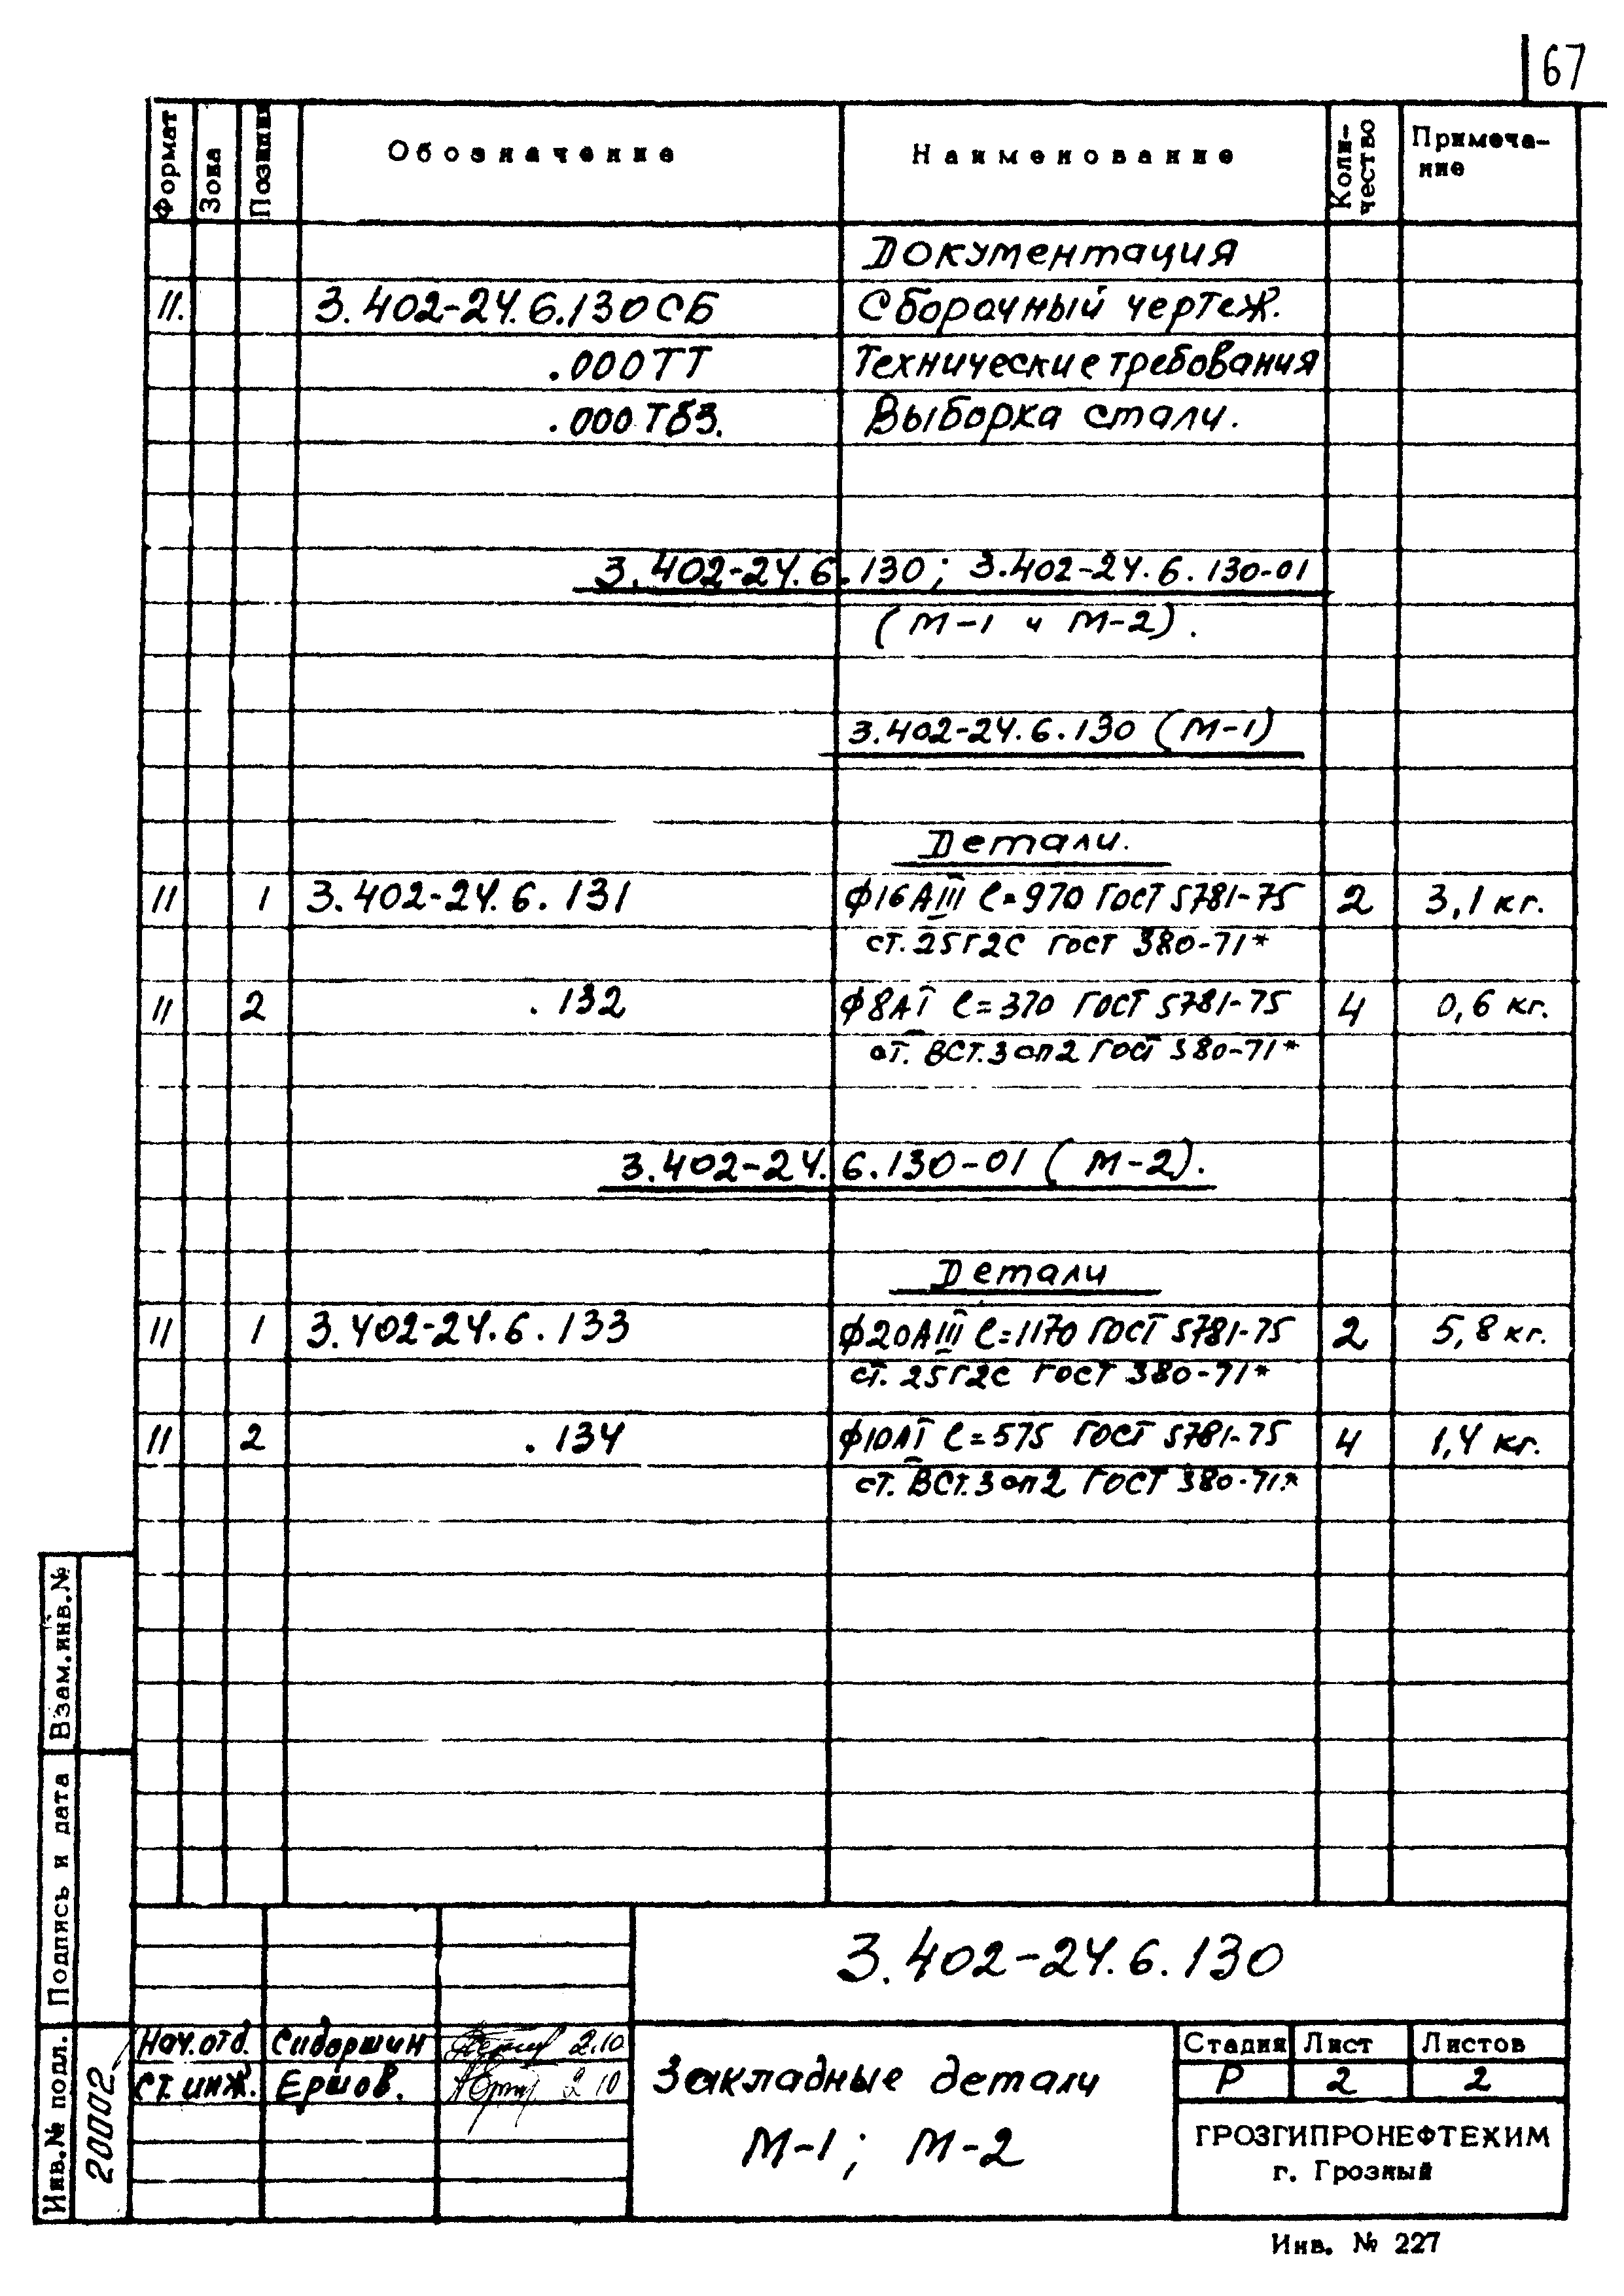 67
Формат Зона Позиция Обозначение Наименование Коли-чество Примеча-ние
Документация
11. 3.402-24.6.130 СБ Сборочный чертеж.
.000ТТ Технические требования
.000ТБ3. Выборка стали.
3.402-24.6.130; 3.402-24.6.130-01
(М-1 и М-2).
3.402-24.6.130 (М-1)
Детали.
11 1 3.402-24.6.131 ф16АIII l=970 ГОСТ 5781-75 2 3,1 кг.
ст. 25Г2С ГОСТ 380-71*
11 2 .132 ф8АI l=370 ГОСТ 5781-75 4 0,6 кг.
ст. ВСт.3сп2 ГОСТ 380-71*
3.402-24.6.130-01 (М-2).
Детали
11 1 3.402-24.6.133 ф20АIII l=1170 ГОСТ 5781-75 2 5,8 кг.
ст. 25Г2С ГОСТ 380-71*
11 2 .134 ф10АI l=575 ГОСТ 5781-75 4 1,4 кг.
ст. ВСт.3сп2 ГОСТ 380-71*
Взам.инв.№
Подпись и дата
Инв.№ подл.
20002
3.402-24.6.130
Нач.отд. Сидоршин 2.10
ст.инж. Ершов. 2 10
Закладные детали
М-1; М-2
Стадия Лист Листов
Р 2 2
ГРОЗГИПРОНЕФТЕХИМ
г. Грозный
Инв. № 227